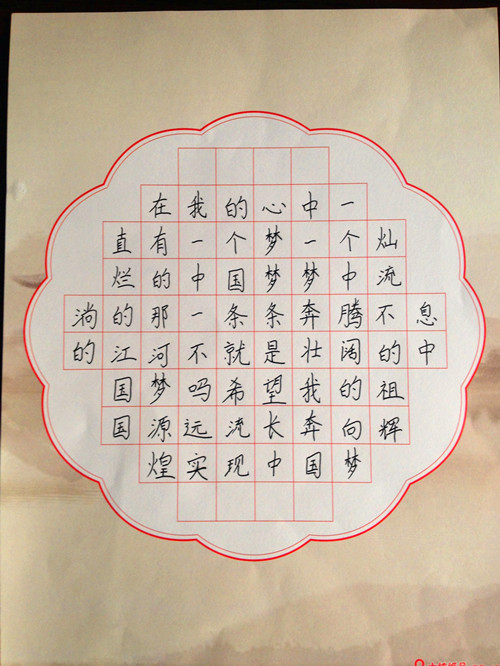 在我的心中一
直有一个梦一个灿
烂的中国梦梦中流
淌的那一条条奔腾不息
的江河不就是壮阔的中
国梦吗希望我的祖
国源远流长奔向辉
煌实现中国梦